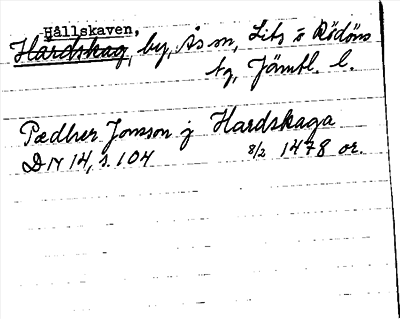 Hållskaven,
Hardskag, by, Ås sn, Lits o Rödöns
tg, Jämtl. l.
Pædher Jonsson j Hardskaga
DN 14, s. 104 8/2 1478 or.